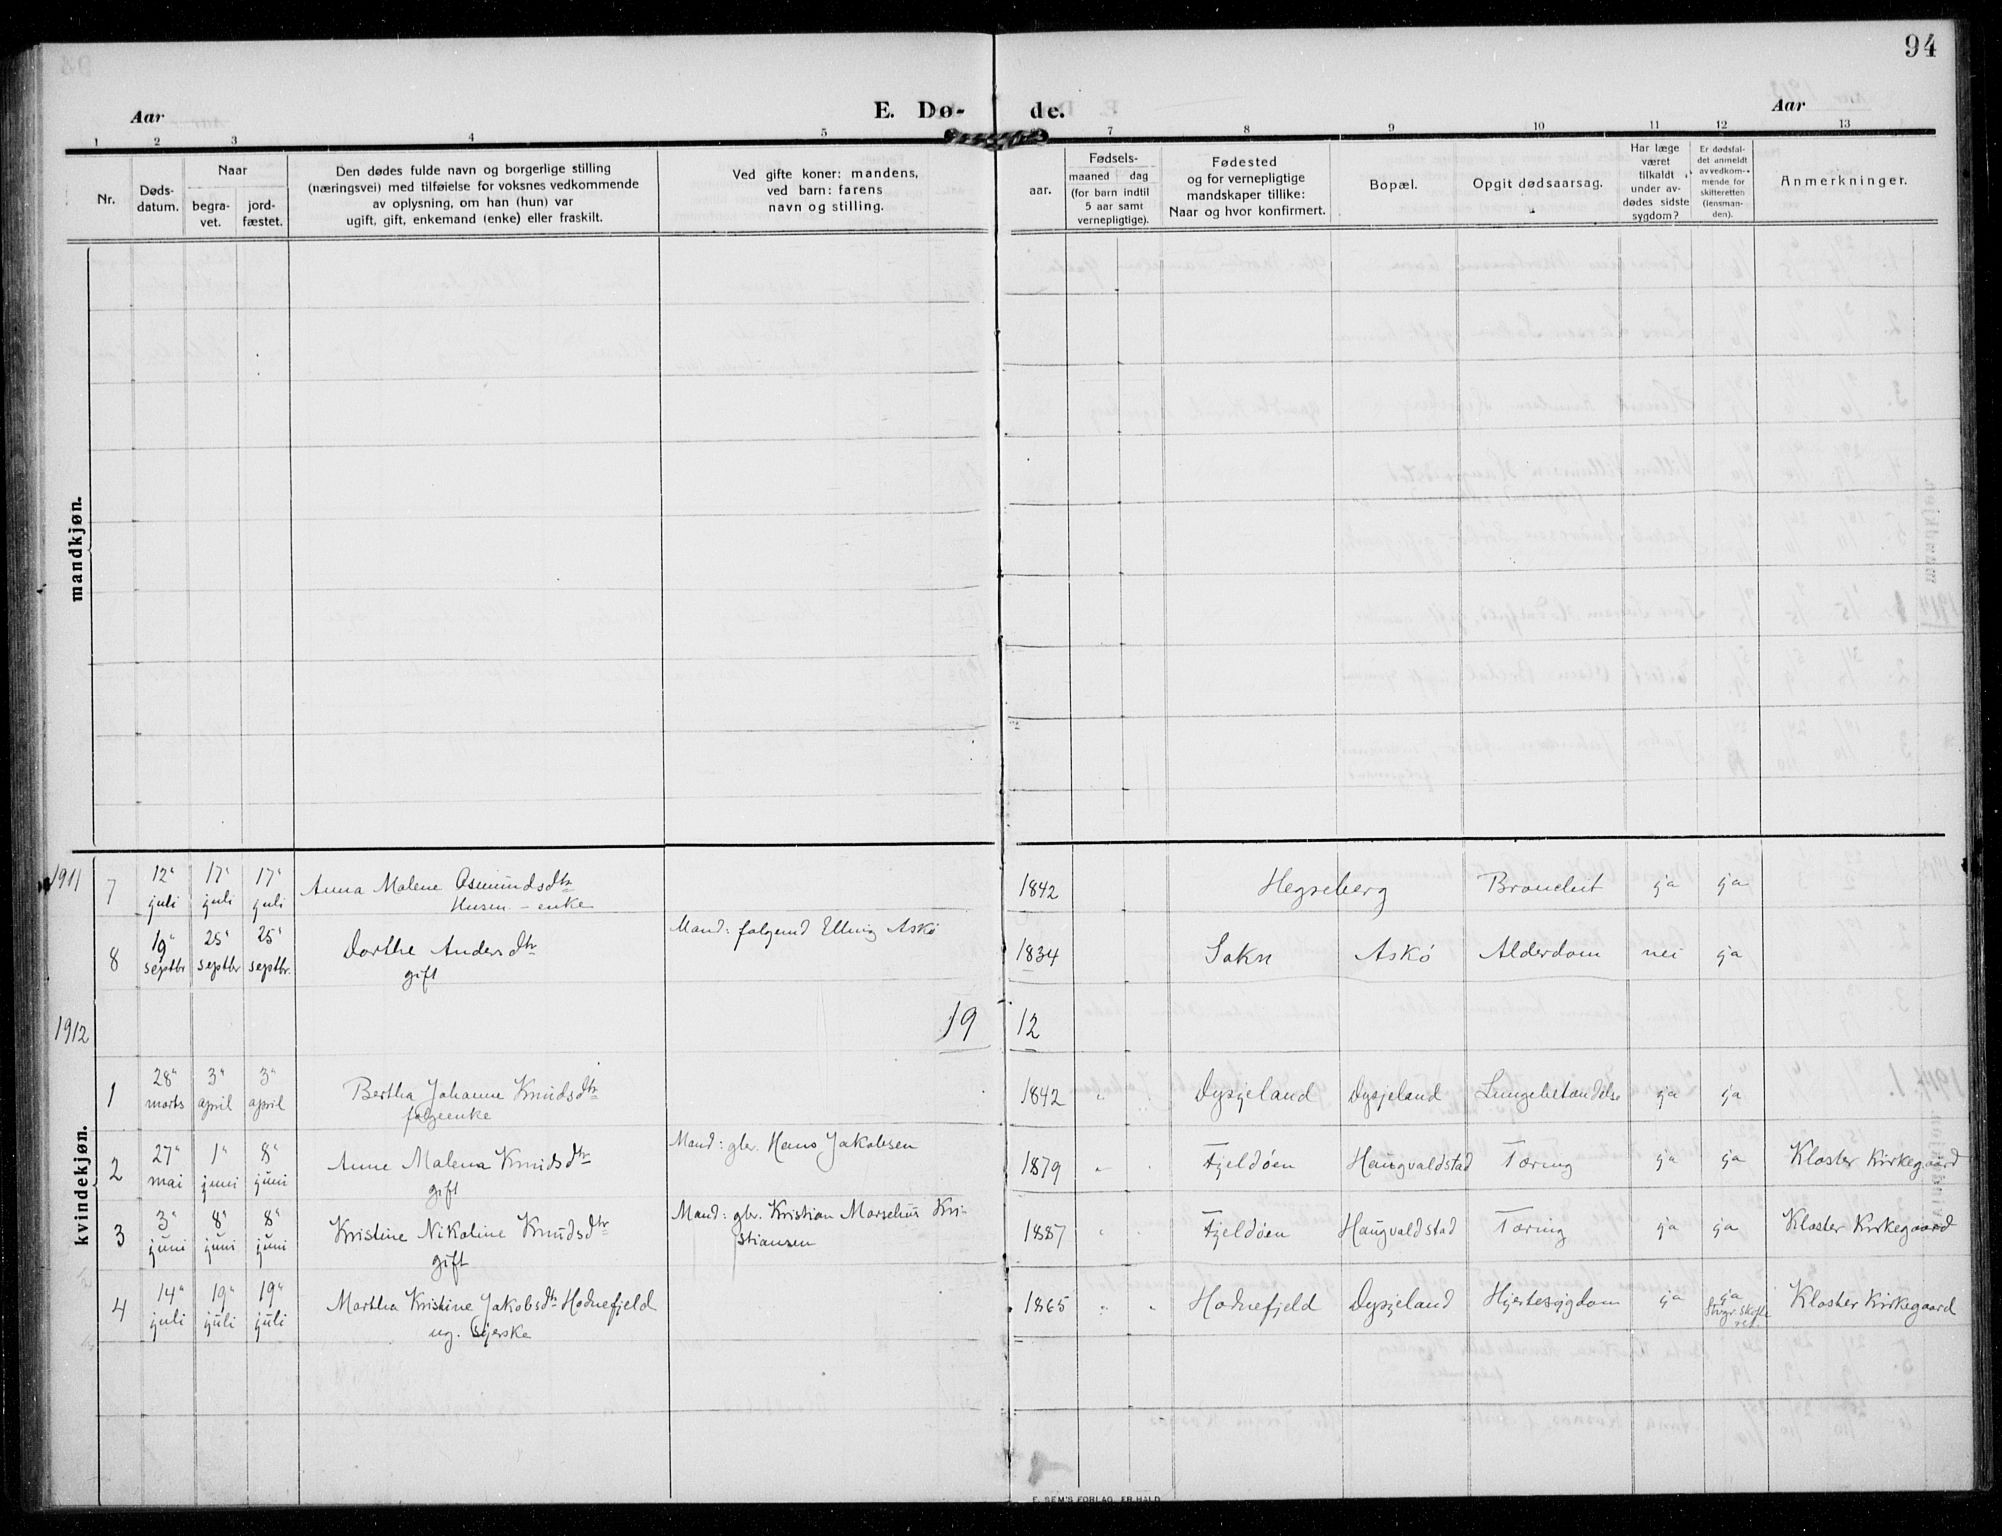 94
Aar E. Dø- de. Aar
1 2 3 4 5 7 8 9 10 11 12 13
Nr.
Døds-
datum.
Naar
begra-
vet.
jord-
fæstet.
Den dødes fulde navn og borgerlige stilling
(næringsvei) med tilføielse for voksnes vedkommende
av oplysning, om han (hun) var
ugift, gift, enkemand (enke) eller fraskilt.
Ved gifte koner: mandens,
ved barn: farens
navn og stilling.
aar.
Fødsels-
maaned dag
(for barn indtil
5 aar samt
vernepligtige).
Fødested
og for vernepligtige
mandskaper tillike:
Naar og hvor konfirmert.
Bopæl.
Opgit dødsaarsag.
Har læge
været
tilkaldt
under av-
dødes sidste
sygdom?
Er dødsfal-
det anmeldt
av vedkom-
mende for
skifteretten
(lensman-
den).
Anmerkninger.
mandkjøn.
kvindekjøn.
1911 7 12" juli 17" juli 17" juli Anna Malene Osmundsdtr
Husen - enke 1842 Hegseberg ja ja
8 19" septbr 25" septbr 25" septbr. Dorthe Andersdtr
gift Mand: folgemd Elling Askö 1834 Sokn Askö Alderdom nei ja
1912 19 12
1 28" marts 3" april 3" april Bertha Johanne Knudsdtr
folgeenke 1842 " " Dysjeland Dysjeland Lungebetændelse ja ja
2 27" mai 1" juni 8" juni Anne Malena Knudsdtr
gift Mand: gbr. Hans Jakobsen 1879 " " Fjeldöen Haugvaldstad Tæring ja ja Kloster Kirkegaard
3 3" juni 8" juni 8" juni Kristine Nikoline Knudsdtr
gift Mand: gbr. Kristian Marselius Kri-
stiansen 1887 " " Fjeldöen Haugvaldstad Tæring ja ja Kloster Kirkegaard
4 14" juli 19" juli 19" juli Martha Kristine Jakobsdtr Hodnefjeld
ug. syerske 1865 " " Hodnefjeld Dysjeland Hjertesygdom ja ja Kloster Kirkegaard
E. SEM'S FORLAG, FR.HALD